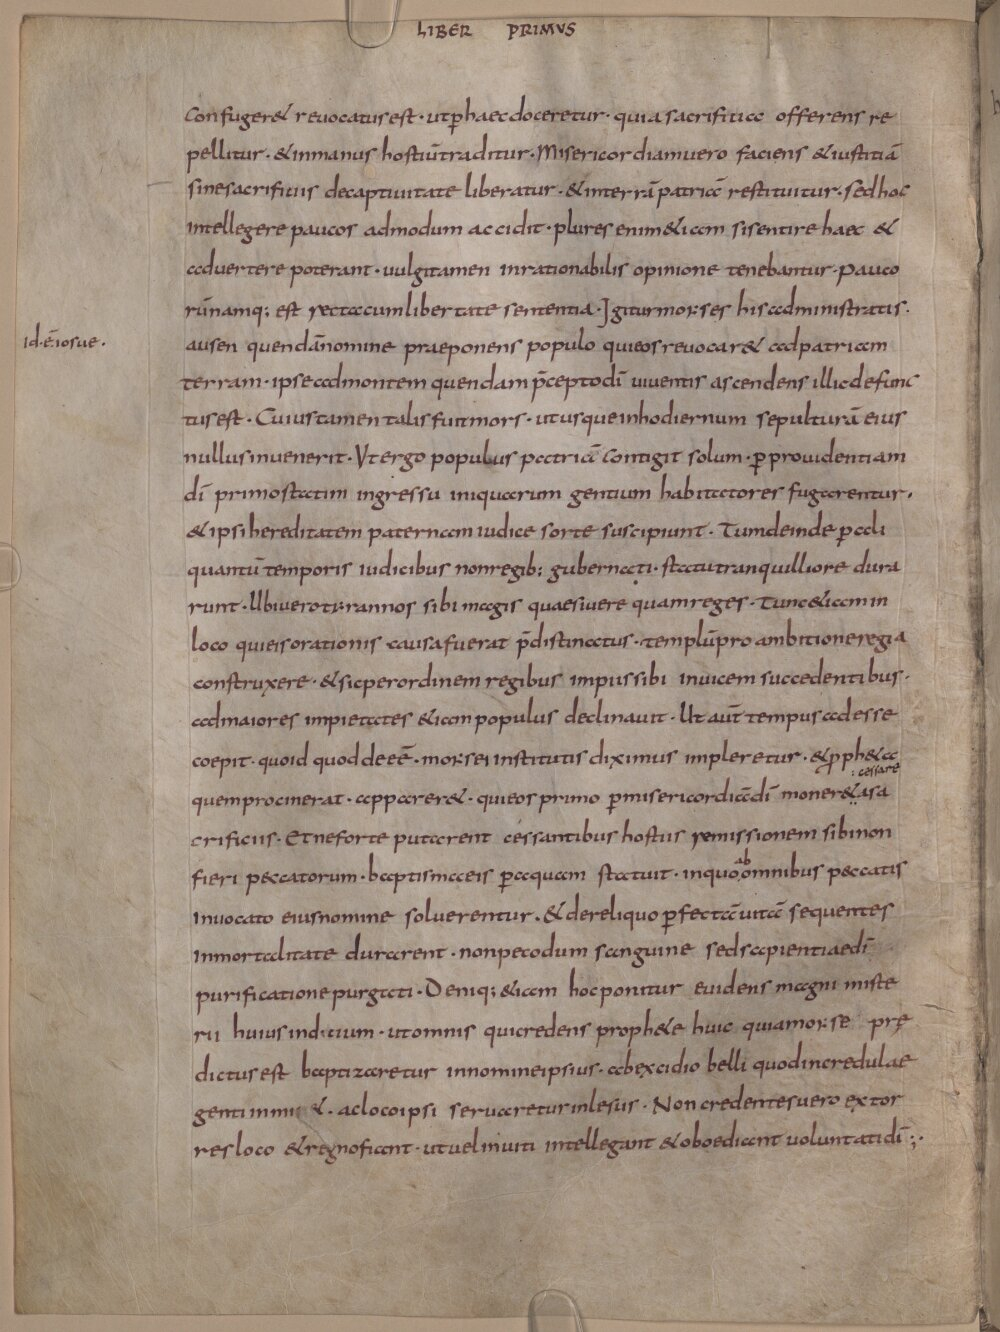 LIBER PRIMVS
Confuger& reuocatus est · ut p̄ haec doceretur · quia sacrifitia offerens re
pellitur · & in manus hostiū traditur · Misericordiam uero faciens & iustitiā
sine sacrificiis de captiuitate liberatur · & in terrā patriā restituitur · sed hoc
intellegere paucos admodum accidit · plures enim & iam si sentire haec &
aduertere poterant · uulgi tamen inrationabilis opinione tenebantur · Pauco
rū namq; est recta cum libertate sententia · Igitur morses his administratis ·
id · ē iosue .
ausen quendā nomine praeponens populo qui eos reuocar& ad patriam
terram · ipse ad montem quendam p̄cepto dī uiuentis ascendens illic defunc
tus est · Cuius tamen talis fuit mors · ut usque in hodiernum sepulturā eius
nullus inuenerit · Vt ergo populus patriā contigit solum · p̄ prouidentiam
dī primo statim ingressu iniquarum gentium habitatores fugarentur ,
& ipsi hereditatem paternam iudice sorte suscipiunt · Tum deinde p̄ ali
quantū temporis iudicibus non regib; gubernati · statu tranquilliore dura
runt · Ubi uero tyrannos sibi magis quaesiuere quam reges · Tunc & iam in
loco qui eis orationis causa fuerat p̄distinatus · templū pro ambitione regia
construxere · & sic per ordinem regibus impiis sibi inuicem succedentibus ·
ad maiores impietates & iam populus declinauit · Ut aūt tempus adesse
coepit · quo id quod deeē · morsei institutis diximus impleretur · & p̄ph&a
: cessare
quem procinerat · appareret · qui eos primo p̄ misericordiā dī moner& : a sa
crificiis · Et ne forte putarent cessantibus hostiis remissionem sibi non
ab
fieri peccatorum · baptisma eis p̄ aquam statuit · in quo omnibus peccatis
inuocato eius nomine soluerentur . & de reliquo p̄fectā uitā sequentes
inmortalitate durarent · non pecodum sanguine sed sapientiae dī
purificatione purgati · Deniq; & iam hoc ponitur euidens magni miste
rii huius indicium · ut omnis qui credens proph&e huic quia morse pre
dictus est baptizaretur in nomine ipsius · ab excidio belli quod incredulae
genti &. ac loco ipsi seruaretur inlesus · Non credentes uero extor
res loco & regno fiant · ut uel inuiti intellegant & oboediant uoluntati dī ;·